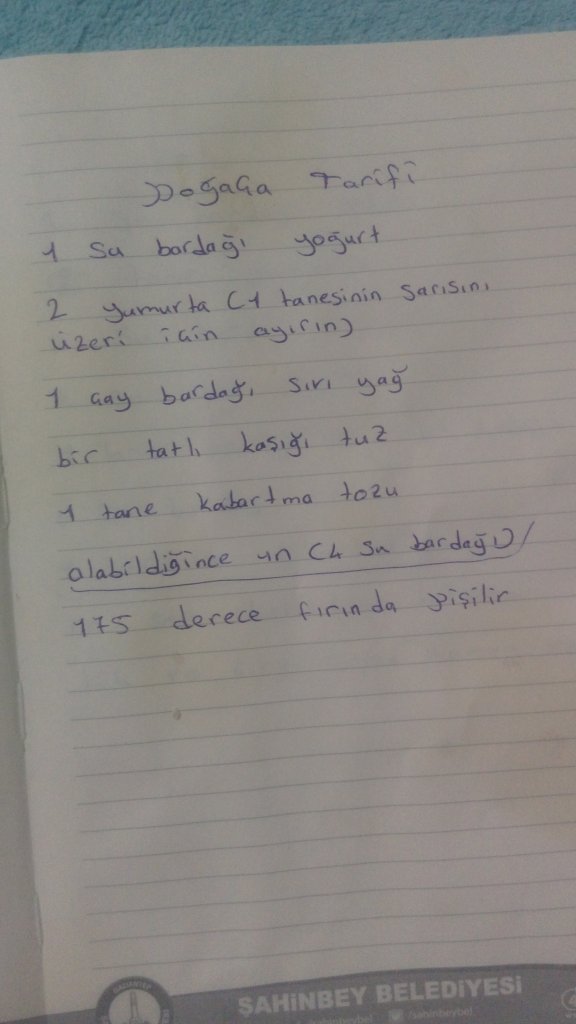 Poğaça Tarifi
1 su bardağı yoğurt
2 yumurta (1 tanesinin sarısını
üzeri için ayırın)
1 çay bardağı sıvı yağ
bir tatlı kaşığı tuz
1 tane kabartma tozu
alabildiğince un (4 su bardağı)/
175 derece fırında pişilir
GAZİANTEP
ŞAHİNBEY BELEDİYESİ
/sahinbeybel /sahinbeybel